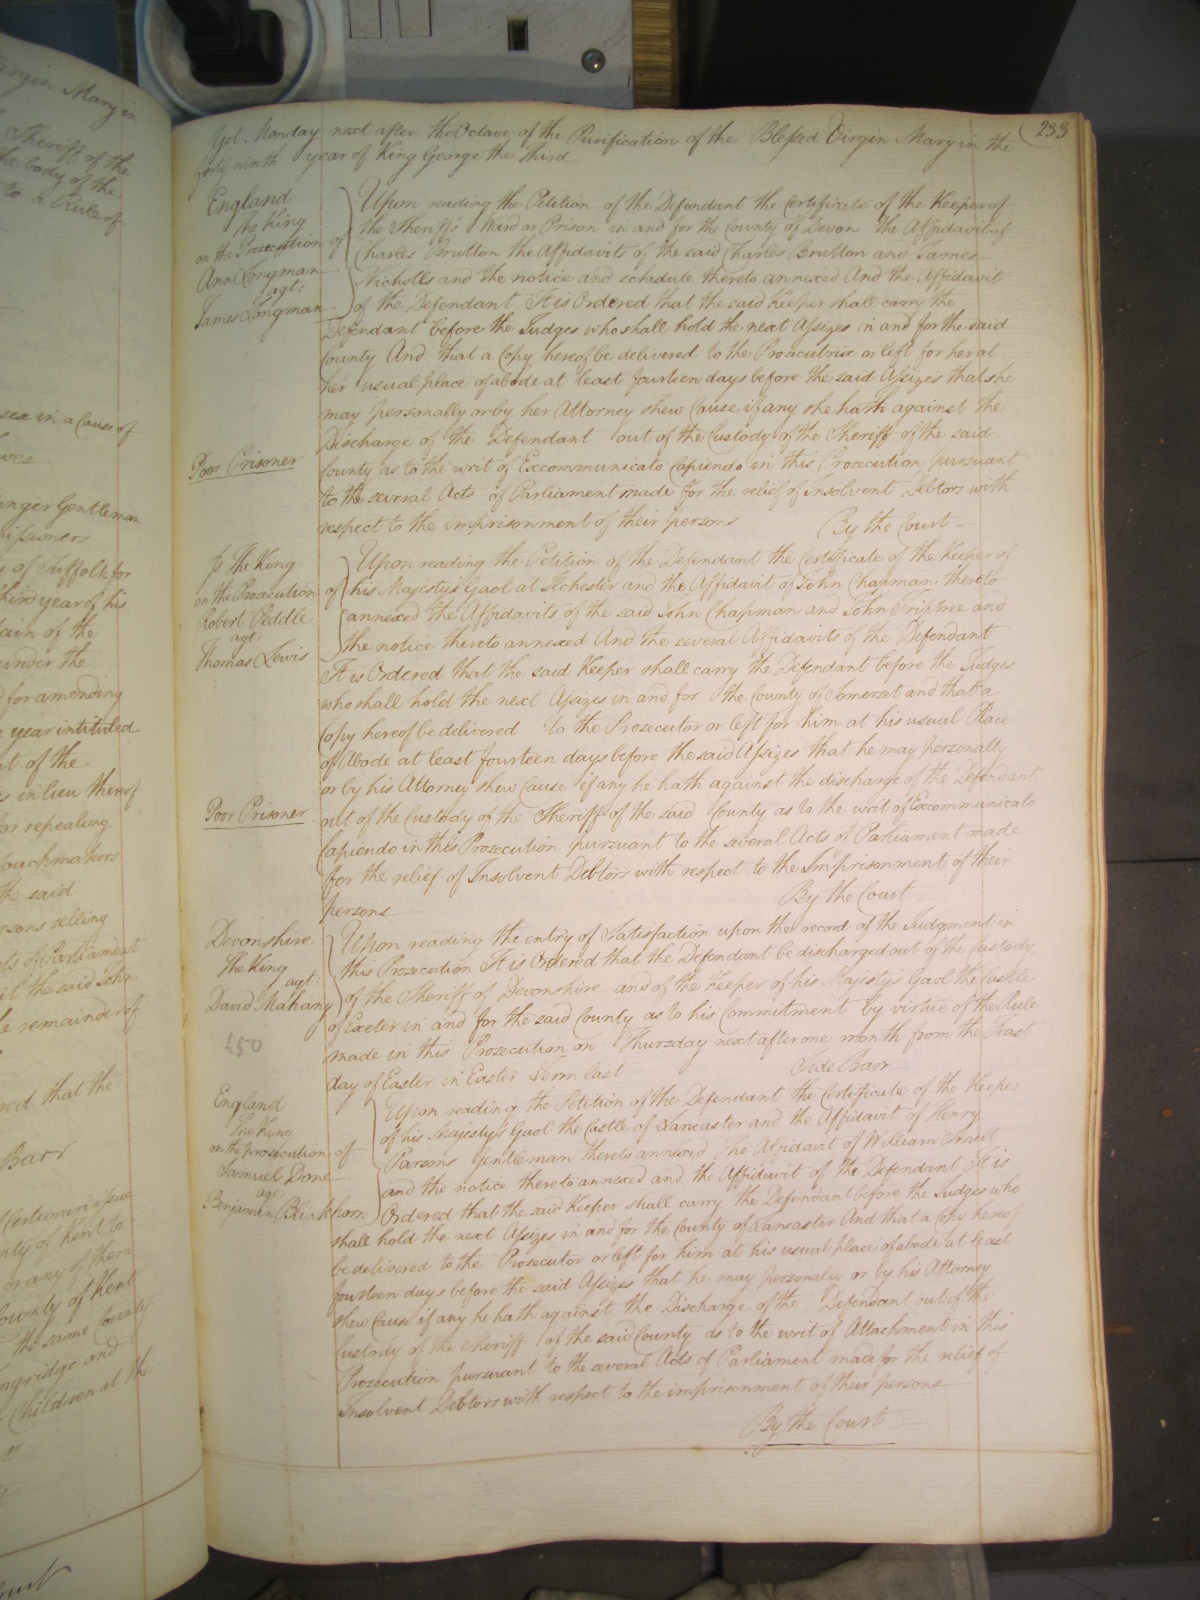 233
Yet Monday next after the Octave of the Purification of the Blessed Virgin Mary in the
forty ninth year of King George the Third
England
The King
on the Prosecution of
Ann Longman
agt:
James Longman
Upon reading the Petition of the Defendant the Certificate of the Keeper of
the Sheriff's Ward or Prison in and for the County of Devon the Affidavit of
Charles Brutton the Affidavits of the said Charles Brutton and James
Nicholls and the notice and schedule thereto annexed And the Affidavit
of the Defendant It is Ordered that the said Keeper shall carry the
Defendant before the Judges who shall hold the next Assizes in and for the said
County And that a Copy hereof be delivered to the Prosecutrix or left for her at
her usual place of abode at least fourteen days before the said Assizes that she
may personally or by her Attorney shew Cause if any she hath against the
Discharge of the Defendant out of the Custody of the Sheriff of the said
Poor Prisoner
County as to the writ of Excommunicato Capiendo in this Prosecution pursuant
to the several Acts of Parliament made for the relief of Insolvent Debtors with
respect to the imprisonment of their persons By the Court
The King
on the Prosecution of
Robert Peddle
agt:
Thomas Lewis
Upon reading the Petition of the Defendant the Certificate of the Keeper of
his Majesty's Gaol at Ilchester and the Affidavit of John Chapman thereto
annexed the Affidavits of the said John Chapman and John Triptree and
the notice thereto annexed And the several Affidavits of the Defendant
It is Ordered that the said Keeper shall carry the Defendant before the Judges
who shall hold the next Assizes in and for the County of Somerset and that a
Copy hereof be delivered to the Prosecutor or left for him at his usual Place
of Abode at least fourteen days before the said Assizes that he may personally
or by his Attorney shew Cause if any he hath against the discharge of the Defendant
Poor Prisoner
out of the Custody of the Sheriff of the said County as to the writ of Excommunicato
Capiendo in this Prosecution pursuant to the several Acts of Parliament made
for the relief of Insolvent Debtors with respect to the Imprisonment of their
persons By the Court
Devonshire
The King
agt:
David Mahany
£50
Upon reading the entry of Satisfaction upon the record of the Judgment in
this Prosecution It is Ordered that the Defendant be discharged out of the Custody
of the Sheriff of Devonshire and of the Keeper of his Majesty's Gaol the Castle
of Exeter in and for the said County as to his Commitment by virtue of the Rule
made in this Prosecution on Thursday next after one month from the Feast
day of Easter in Easter Term last Side Barr
England
The King
on the prosecution of
Samuel Done
agt:
Benjamin Blinkhorn
Upon reading the Petition of the Defendant the Certificate of the Keeper
of his Majesty's Gaol the Castle of Lancaster and the Affidavit of Henry
Parsons Gentleman thereto annexed The Affidavit of William
and the notice thereto annexed and the Affidavit of the Defendant It is
Ordered that the said Keeper shall carry the Defendant before the Judges who
shall hold the next Assizes in and for the County of Lancaster And that a Copy hereof
be delivered to the Prosecutor or left for him at his usual place of abode at least
fourteen days before the said Assizes that he may personally or by his Attorney
shew Cause if any he hath against the Discharge of the Defendant out of the
Custody of the Sheriff of the said County as to the writ of Attachment in this
Prosecution pursuant to the several Acts of Parliament made for the relief of
Insolvent Debtors with respect to the imprisonment of their persons
By the Court
Virgin Mary in
Sheriff of the
the body of the
to a Rule of
in a Cause of
Gentleman
of Suffolk for
third year of his
of the
under the
for amending
year intituled
of the
in lieu thereof
for repealing
Coachmakers
the said
selling
of Parliament
the said John
remainder of
that the
Barr
Certiorari issue
of Kent to
or any of them
County of Kent
the same County
and
Children at the